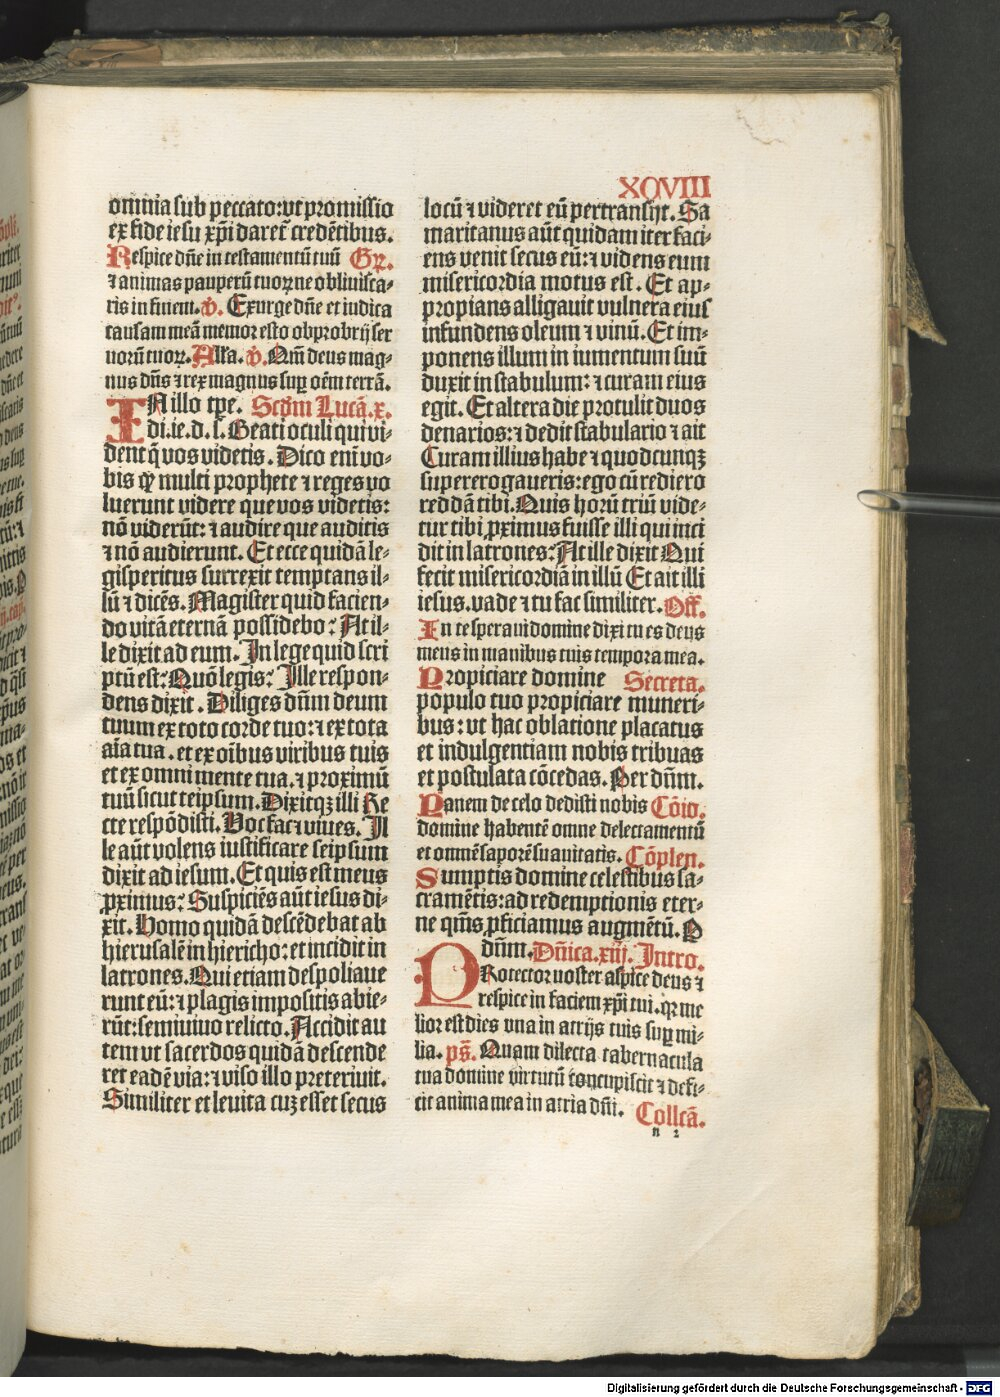 XCVIII
omnia sub peccato: vt promissio
ex fide iesu xp̄i daret̄ credētibus.
Respice dn̄e in testamentū tuū Gꝛ.
⁊ animas pauperū tuoꝝ ne obliuisca⸗
ris in finem. v̄. Exurge dn̄e et iudica
causam meā memor esto obprobrij ser
uorū tuoꝝ. Alla. v̄. Qm̄ deus mag⸗
nus dn̄s ⁊ rex magnus suꝑ oēm terrā.
IN illo tp̄e. Scd̄m Lucā.x.
di.ie.d.s. Beati oculi qui vi⸗
dent q̄ vos videtis. Dico eni vo⸗
bis ꝙ multi prophete ⁊ reges vo
luerunt videre que vos videtis:
nō viderūt: ⁊ audire que auditis
⁊ nō audierunt. Et ecce quidā le⸗
gisperitus surrexit temptans il⸗
lū ⁊ dicēs. Magister quid facien⸗
do vitā eternā possidebo: At il⸗
le dixit ad eum. In lege quid scri
ptū est: Quō legis: Ille respon⸗
dens dixit. Diliges dn̄m deum
tuum ex toto corde tuo: ⁊ ex tota
aīa tua. et ex oībus viribus tuis
et ex omni mente tua. ⁊ proximū
tuū sicut teipsum. Dixitqꝫ illi Re
cte respōdisti. Hoc fac ⁊ viues. Il
le aūt volens iustificare seipsum
dixit ad iesum. Et quis est meus
ꝓximus: Suspiciēs aūt iesus di⸗
xit. Homo quidā descēdebat ab
hierusalē in hiericho: et incidit in
latrones. Qui etiam despoliaue
runt eū: ⁊ plagis impositis abie⸗
rūt: semiuiuo relicto. Accidit au
tem vt sacerdos quidā descende
ret eadē via: ⁊ viso illo preteriuit.
Similiter et leuita cuꝫ esset secus
locū ⁊ videret eū pertransijt. Sa
maritanus aūt quidam iter faci⸗
ens venit secus eū: ⁊ videns eum
misericordia motus est. Et ap⸗
propians alligauit vulnera eius
infundens oleum ⁊ vinū. Et im⸗
ponens illum in iumentum suū
duxit in stabulum: ⁊ curam eius
egit. Et altera die protulit duos
denarios: ⁊ dedit stabulario ⁊ ait
Curam illius habe ⁊ quodcunqꝫ
supererogaueris: ego cū rediero
reddā tibi. Quis horū triū vide⸗
tur tibi ꝓximus fuisse illi qui inci
dit in latrones: At ille dixit Qui
fecit misericordiā in illū Et ait illi
iesus. vade ⁊ tu fac similiter. Off.
In te speraui domine dixi tu es deus
meus in manibus tuis tempora mea.
Propiciare domine Secreta.
populo tuo propiciare muneri⸗
bus: vt hac oblatione placatus
et indulgentiam nobis tribuas
et postulata cōcedas. Per dn̄m.
Panem de celo dedisti nobis Cōio.
domine habentē omne delectamentū
et omnē saporē suauitatis. Cōplen.
Sumptis domine celestibus sa⸗
cramētis: ad redemptionis eter⸗
ne qs̄ms ꝓficiamus augmētū. P
dn̄m. Dn̄ica.xiij. Intro.
PRotector noster aspice deus ⁊
respice in faciem xp̄i tui. qꝛ me
lior est dies vna in atrijs tuis suꝑ mi⸗
lia. ps̄. Quam dilecta tabernacula
tua domine virtutū concupiscit ⁊ defi⸗
cit anima mea in atria dn̄i. Collcā.
n 2
Digitalisierung gefördert durch die Deutsche Forschungsgemeinschaft - DFG